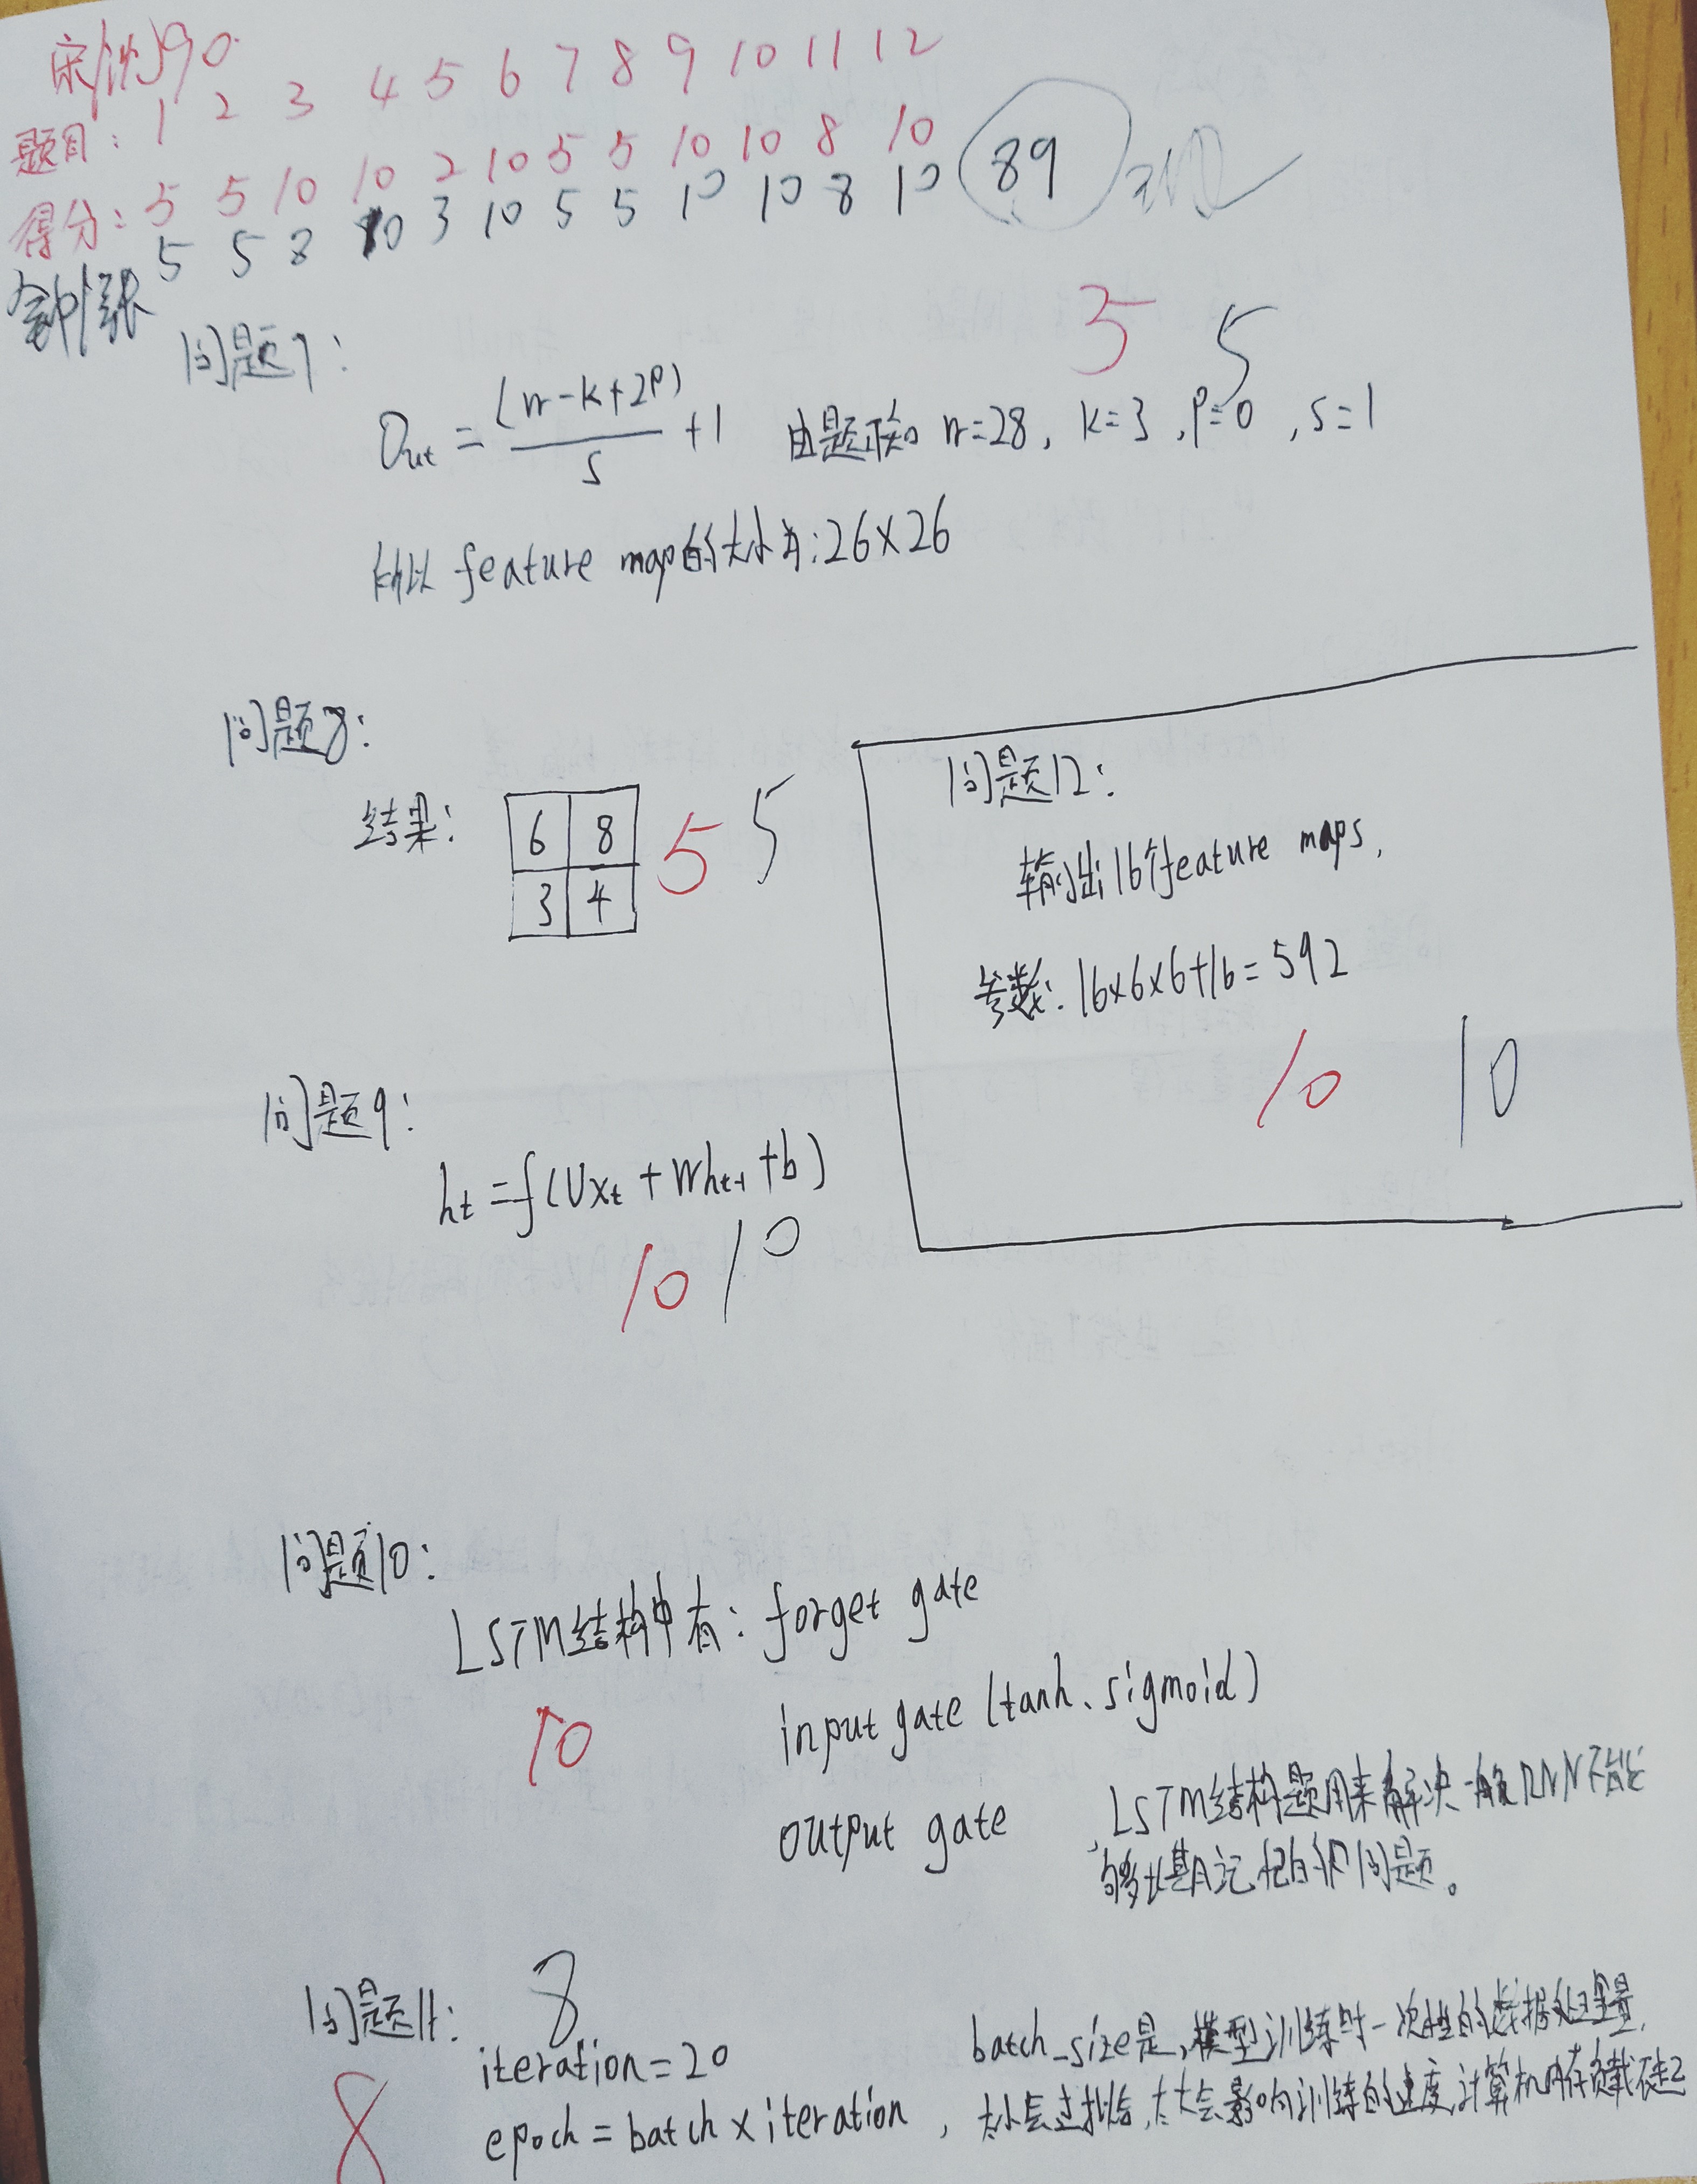 宋/沈 90
题目: 1 2 3 4 5 6 7 8 9 10 11 12
得分: 5 5 10 10 2 10 5 5 10 10 8 10
钟/张 5 5 8 10 3 10 5 5 10 10 8 10 89
问题7:
5 5
Out = (n-k+2P)/s +1 由题可知 n=28, k=3, P=0, s=1
所以 feature map的大小为:26×26
问题8:
结果:
6 8
3 4
5 5
问题12:
输出16个feature maps,
参数: 16×6×6+16=592
10 10
问题9:
ht=f(Uxt+Wht-1+b)
10 10
问题10:
LSTM结构中有: forget gate
input gate (tanh、sigmoid)
output gate
10
LSTM结构题用来解决一般RNN不能
够长期记忆的问题。
问题11: 8
8
iteration=20
epoch = batch × iteration,
batch_size是,模型训练时一次性的数据处理量,
太小会过拟合,太大会影响训练的速度,计算机内存负载